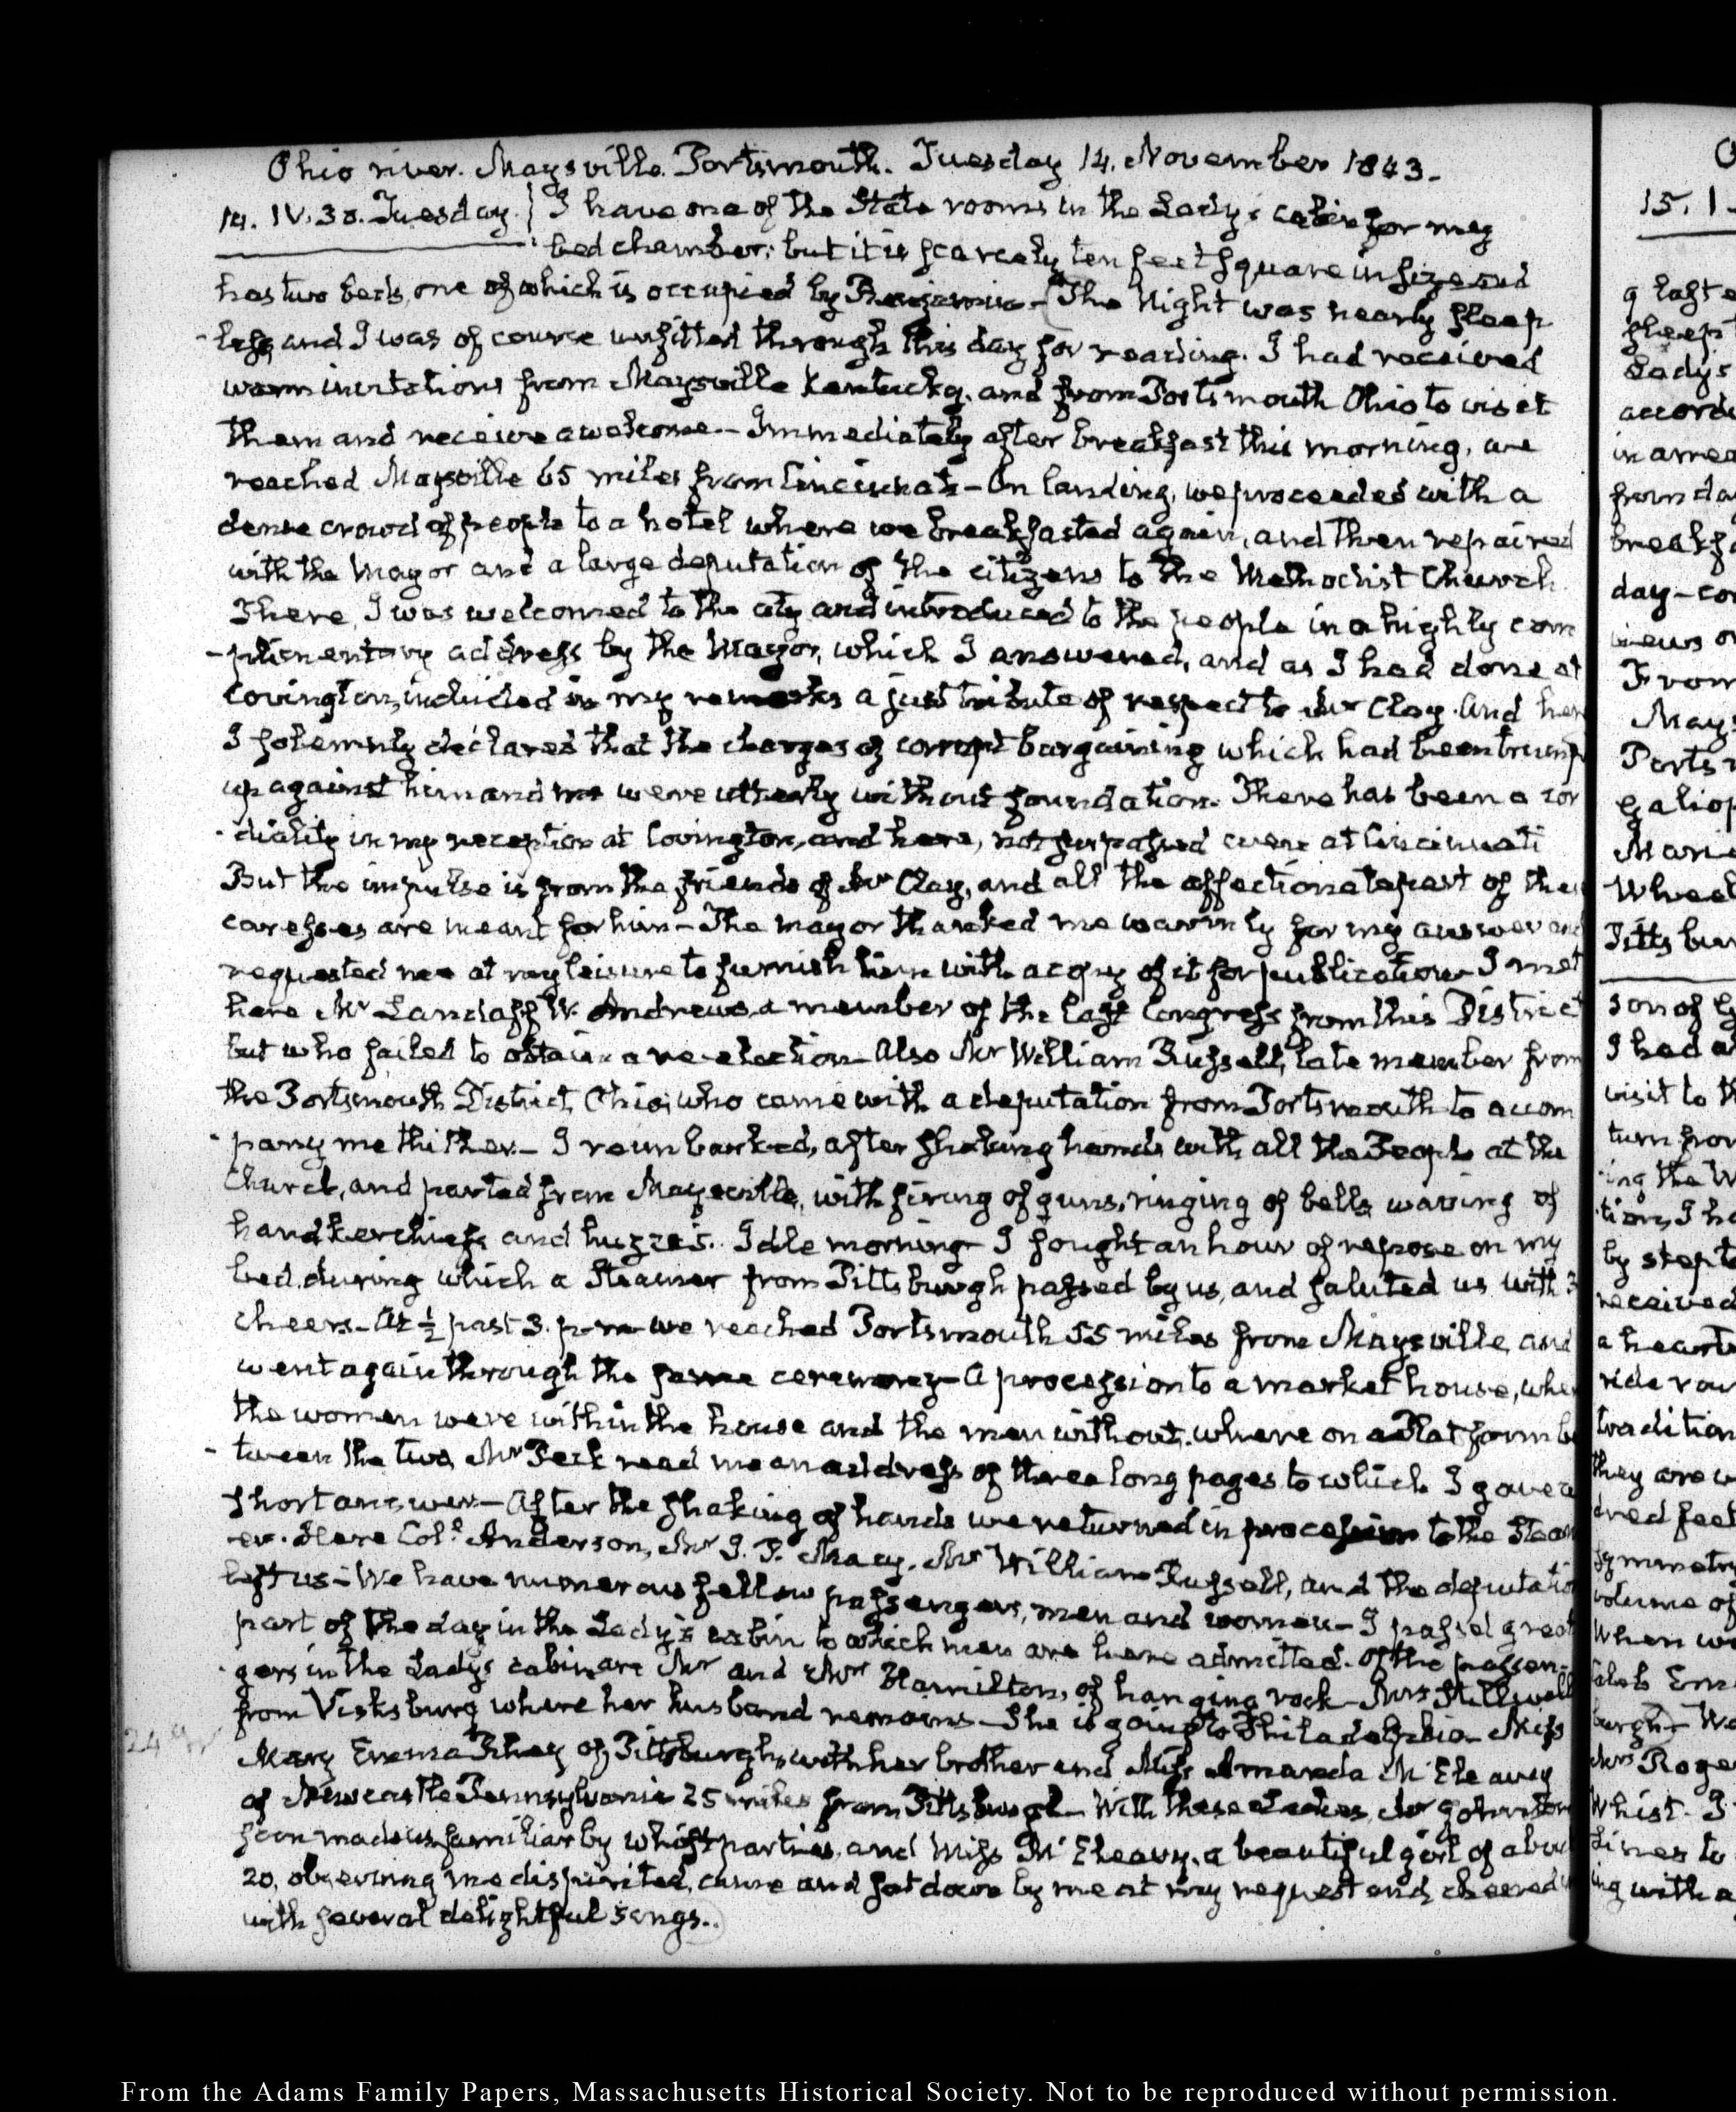 Ohio river. Maysville. Portsmouth. Tuesday 14. November 1843.-
14. IV. 30. Tuesday. } I have one of the State rooms in the Lady's cabin for my
bed chamber: but it is scarcely ten feet square in size and
has two beds, one of which is occupied by Benjamin- (The Night was nearly sleep
-less and I was of course unfitted through this day for reading. I had received
warm invitations from Maysville Kentucky, and from Portsmouth Ohio to visit
them and receive a welcome- Immediately after breakfast this morning, we
reached Maysville 65 miles from Cincinnati- On landing, we proceeded with a
dense crowd of people to a hotel where we breakfasted again, and then repaired
with the Mayor and a large deputation of the citizens to the Methodist Church
There, I was welcomed to the city and introduced to the people in a highly com
-plimentary address by the Mayor, which I answered, and as I had done at
Covington, included in my remarks a just tribute of respect to Mr Clay. And her
I solemnly declared that the charges of corrupt bargaining which had been trump
up against him and me were utterly without foundation. There has been a cor
-diality in my reception at Covington, and here, not surpassed even at Cincinnati
But the impulse is from the friends of Mr Clay, and all the affectionate part of the
caresses are meant for him- The mayor thanked me warmly for my answer and
requested me at my leisure to furnish him with a copy of it for publication- I met
here Mr Landaff W. Andrews a member of the last Congress from this District
but who failed to obtain a re-election- Also Mr William Russell, late member from
the Portsmouth District, Ohio; who came with a deputation from Portsmouth to accom
-pany me thither- I reimbarked, after shaking hands with all the People at the
Church, and parted from Maysville, with firing of guns, ringing of bells waving of
handkerchiefs and huzzas. Idle morning- I sought an hour of repose on my
bed, during which a Steamer from Pittsburgh passed by us, and saluted us with 3
cheers- At ½ past 3. p.m we reached Portsmouth 55 miles from Maysville, and
went again through the same ceremony- A procession to a market house, whe
the women were within the house and the men without. where on a Platform be
-tween the two, Mr Peck read me an address of three long pages to which I gave a
short answer- After the shaking of hands we returned in procession to the Steam
er. Here Col. Anderson, Mr J. P. Macy, Mr William Russell, and the deputatio
left us- We have numerous fellow passengers, men and women- I passed great
part of the day in the Lady's cabin to which men are here admitted. Of the passen-
-gers in the Ladys cabin, are Mr and Mrs Hamilton, of hanging rock- Mrs Stillwell
from Vicksburg where her husband remains- She is going to Philadelphia- Miss
Mary Emma of Pittsburgh, with her brother and Miss Amanda McEleavy
of Newcastle Pennsylvania 25 miles from Pittsburgh- With these Ladies, Mr Johnston
soon made us familiar by whist parties, and Miss McEleavy, a beautiful girl of abou
20, observing me dispirited, came and sat down by me at my request and cheered
with several delightful songs.)
15. I
a last
sleep
Ladys
accord
in
from da
breakfa
day- con
news o
From
Mays
Ports
Galiop
Mari
Wheel
Pittsbur
son of
I had a
visit to th
turn from
-ing the W
-tion, I ha
by
received
a heart
ride
tradition
they are
dred feet
symmetry
volume of
When we
burgh-
Mrs Roge
Whist. I
Lines to
ing with a
From the Adams Family Papers, Massachusetts Historical Society. Not to be reproduced without permission.